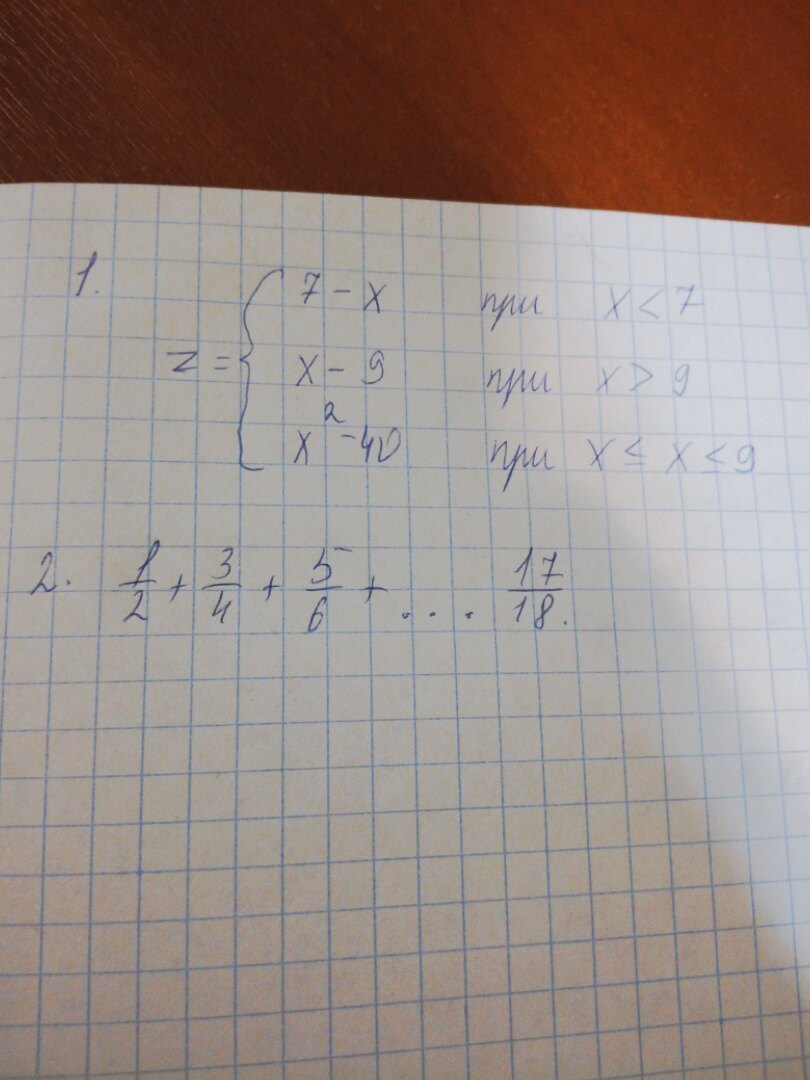 1.
7 - x при x < 7
z = { x - 9 при x > 9
x² - 40 при x ≤ x ≤ 9
2. 1/2 + 3/4 + 5/6 + . . . 17/18.